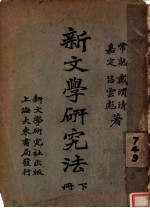 常熟 戴渭清
嘉定 呂雲彪 著
新文學研究法
下冊
新文學研究社出版
上海大東書局發行
749